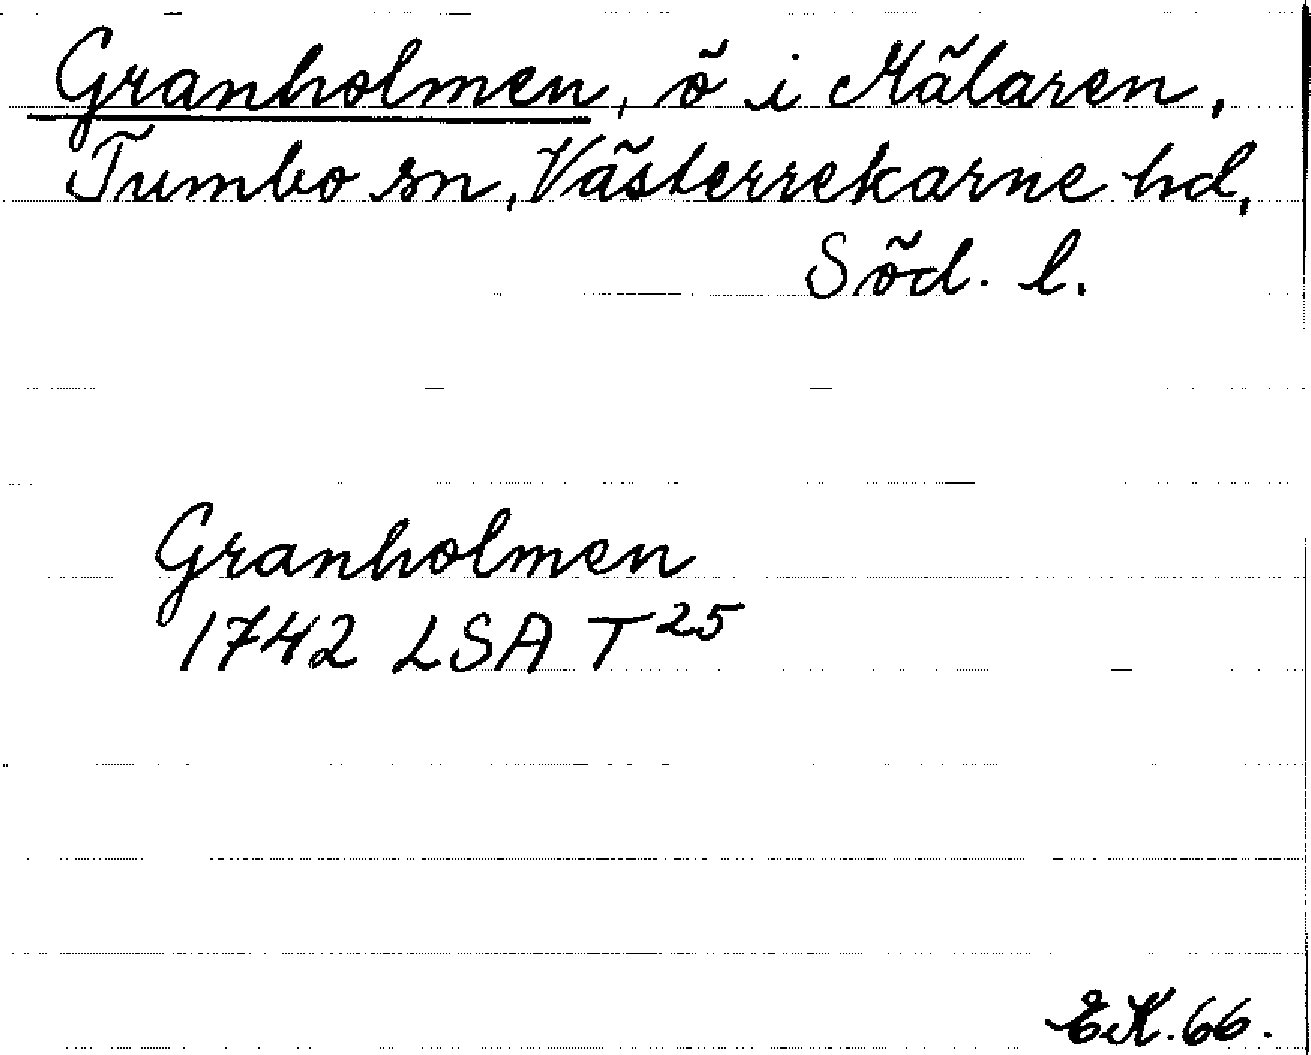 Granholmen, ö i Mälaren,
Tumbo sn, Västerrekarne hd,
Söd. l.
Granholmen
1742 LSA T²⁵
EK. 66.